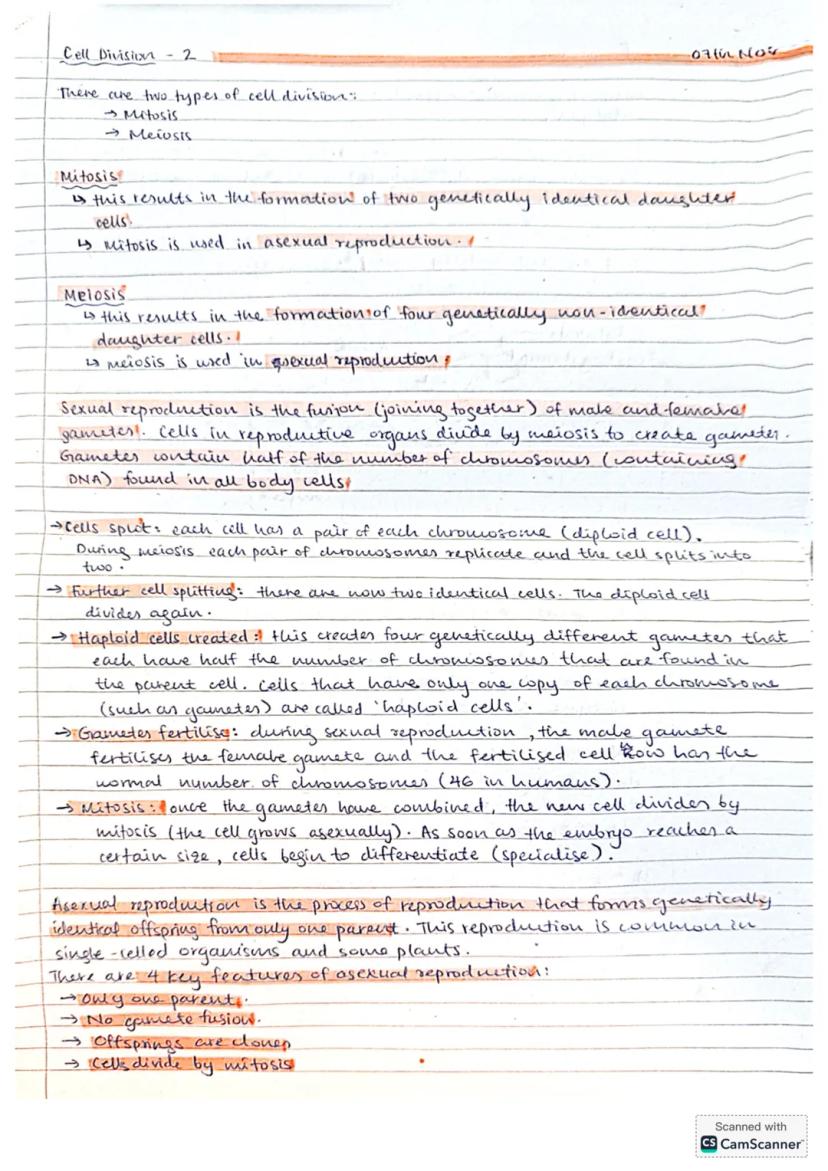 Cell Division - 2
07th Nov
There are two types of cell division:
→ Mitosis
→ Meiosis
Mitosis
↳ this results in the formation of two genetically identical daughter
cells.
↳ Mitosis is used in asexual reproduction.
Meiosis
↳ this results in the formation of four genetically non-identical
daughter cells.
↳ meiosis is used in sexual reproduction
Sexual reproduction is the fusion (joining together) of male and female
gametes. Cells in reproductive organs divide by meiosis to create gametes.
Gametes contain half of the number of chromosomes (containing
DNA) found in all body cells
→ Cells split: each cell has a pair of each chromosome (diploid cell).
During meiosis each pair of chromosomes replicate and the cell splits into
two.
→ Further cell splitting: there are now two identical cells. The diploid cell
divides again.
→ Haploid cells created: this creates four genetically different gametes that
each have half the number of chromosomes that are found in
the parent cell. Cells that have only one copy of each chromosome
(such as gametes) are called 'haploid cells'.
→ Gametes fertilise: during sexual reproduction, the male gamete
fertilises the female gamete and the fertilised cell now has the
normal number of chromosomes (46 in humans).
→ Mitosis: once the gametes have combined, the new cell divides by
mitosis (the cell grows asexually). As soon as the embryo reaches a
certain size, cells begin to differentiate (specialise).
Asexual reproduction is the process of reproduction that forms genetically
identical offspring from only one parent. This reproduction is common in
single-celled organisms and some plants.
There are 4 key features of asexual reproduction:
→ Only one parent.
→ No gamete fusion.
→ Offsprings are clones
→ Cells divide by mitosis
Scanned with
CS CamScanner